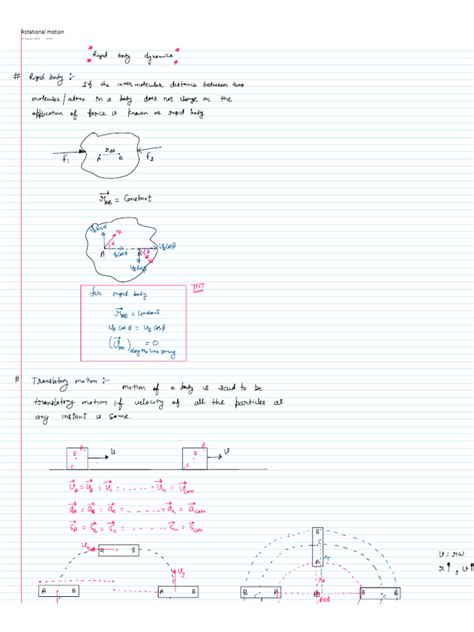 Rotational motion
* Rigid body dynamics *
# Rigid body :-
If the inter molecular distance between two
molecules/atoms in a body does not change on the
application of force is known as rigid body.
r_AB
F₁ A B F₂
r⃗_AB = Constant
A B
for rigid body
TNT
r⃗_AB = Constant
v_A cos α = v_B cos β
(v⃗_AB) along the line joining = 0
# Translatory motion :-
motion of a body is said to be
translatory motion if velocity of all the particles at
any instant is same.
A B C v
A B C v
v⃗_A = v⃗_B = v⃗_C = ------- v⃗_n = v⃗_com
a⃗_A = a⃗_B = a⃗_C = ------- a⃗_n = a⃗_com
s⃗_A = s⃗_B = s⃗_C = ------- s⃗_n = s⃗_com
B
C
A
v = rω
r↑ , v↑
A B
A B
B A
AOR
A C B